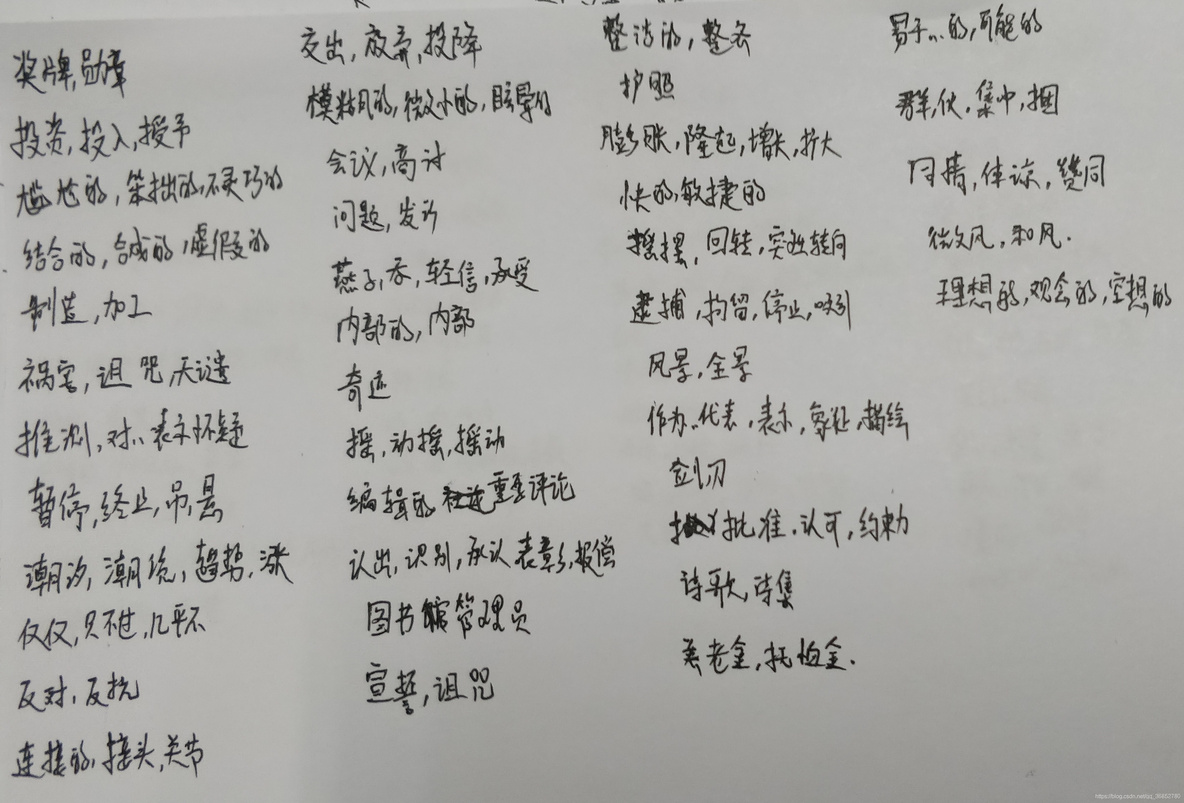 奖牌,勋章
投资,投入,授予
尴尬的,笨拙的,不灵巧的
结合的,合成的,虚假的
制造,加工
祸害,诅咒,天谴
推测,对..表示怀疑
暂停,终止,吊,悬
潮汐,潮流,趋势,涨
仅仅,只不过,几乎不
反对,反抗
连接的,接头,关节
交出,放弃,投降
模糊的,微小的,眩晕的
会议,商讨
问题,发行
燕子,吞,轻信,承受
内部的,内部
奇迹
摇,动摇,摇动
编辑的 重要评论
认出,识别,承认 表彰,报偿
图书馆管理员
宣誓,诅咒
整洁的,整齐
护照
膨胀,隆起,增长,扩大
快的,敏捷的
摇摆,回转,突然转向
逮捕,拘留,停止,吸引
风景,全景
作为..代表,表示,象征,描绘
剑,刀
批准.认可,约束力
诗歌,诗集
养老金,抚恤金.
易于..的,可能的
群,伙.集中,捆
同情,体谅,赞同
微风,和风.
理想的,观念的,空想的
https://blog.csdn.net/qq_36453190